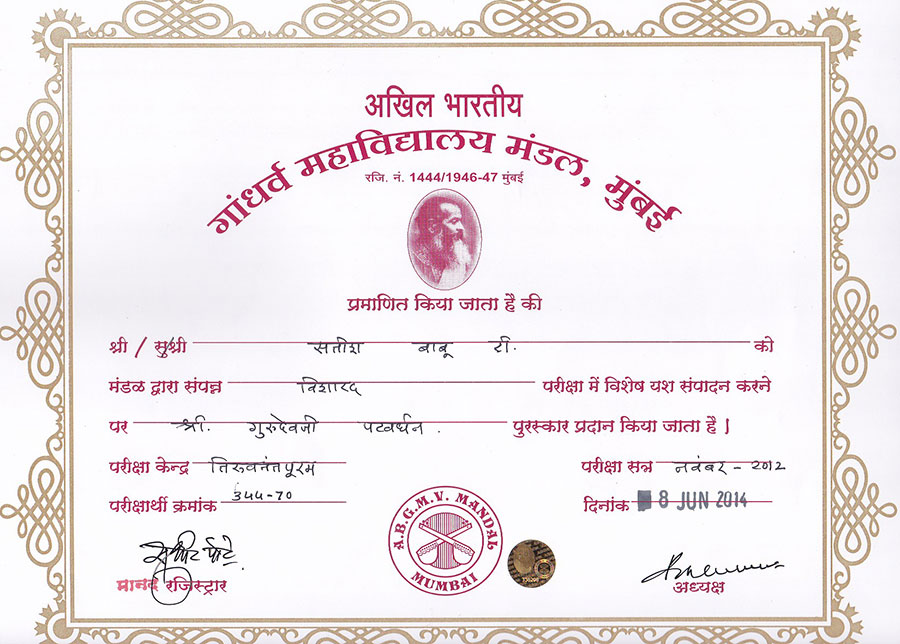 अखिल भारतीय
गांधर्व महाविद्यालय मंडल, मुंबई
रजि. नं. 1444/1946-47 मुंबई
प्रमाणित किया जाता है की
श्री / सुश्री सतीश बाबू टी. को
मंडळ द्वारा संपन्न विशारद परीक्षा में विशेष यश संपादन करने
पर श्री. गुरुदेवजी पटवर्धन . पुरस्कार प्रदान किया जाता है |
परीक्षा केन्द्र तिरुवनंतपूरम परीक्षा सत्र नवंबर - २०१२
परीक्षार्थी क्रमांक ३४५-७० दिनांक 8 JUN 2014
A.B.G.M.V. MANDAL
MUMBAI
मानद रजिस्ट्रार
अध्यक्ष